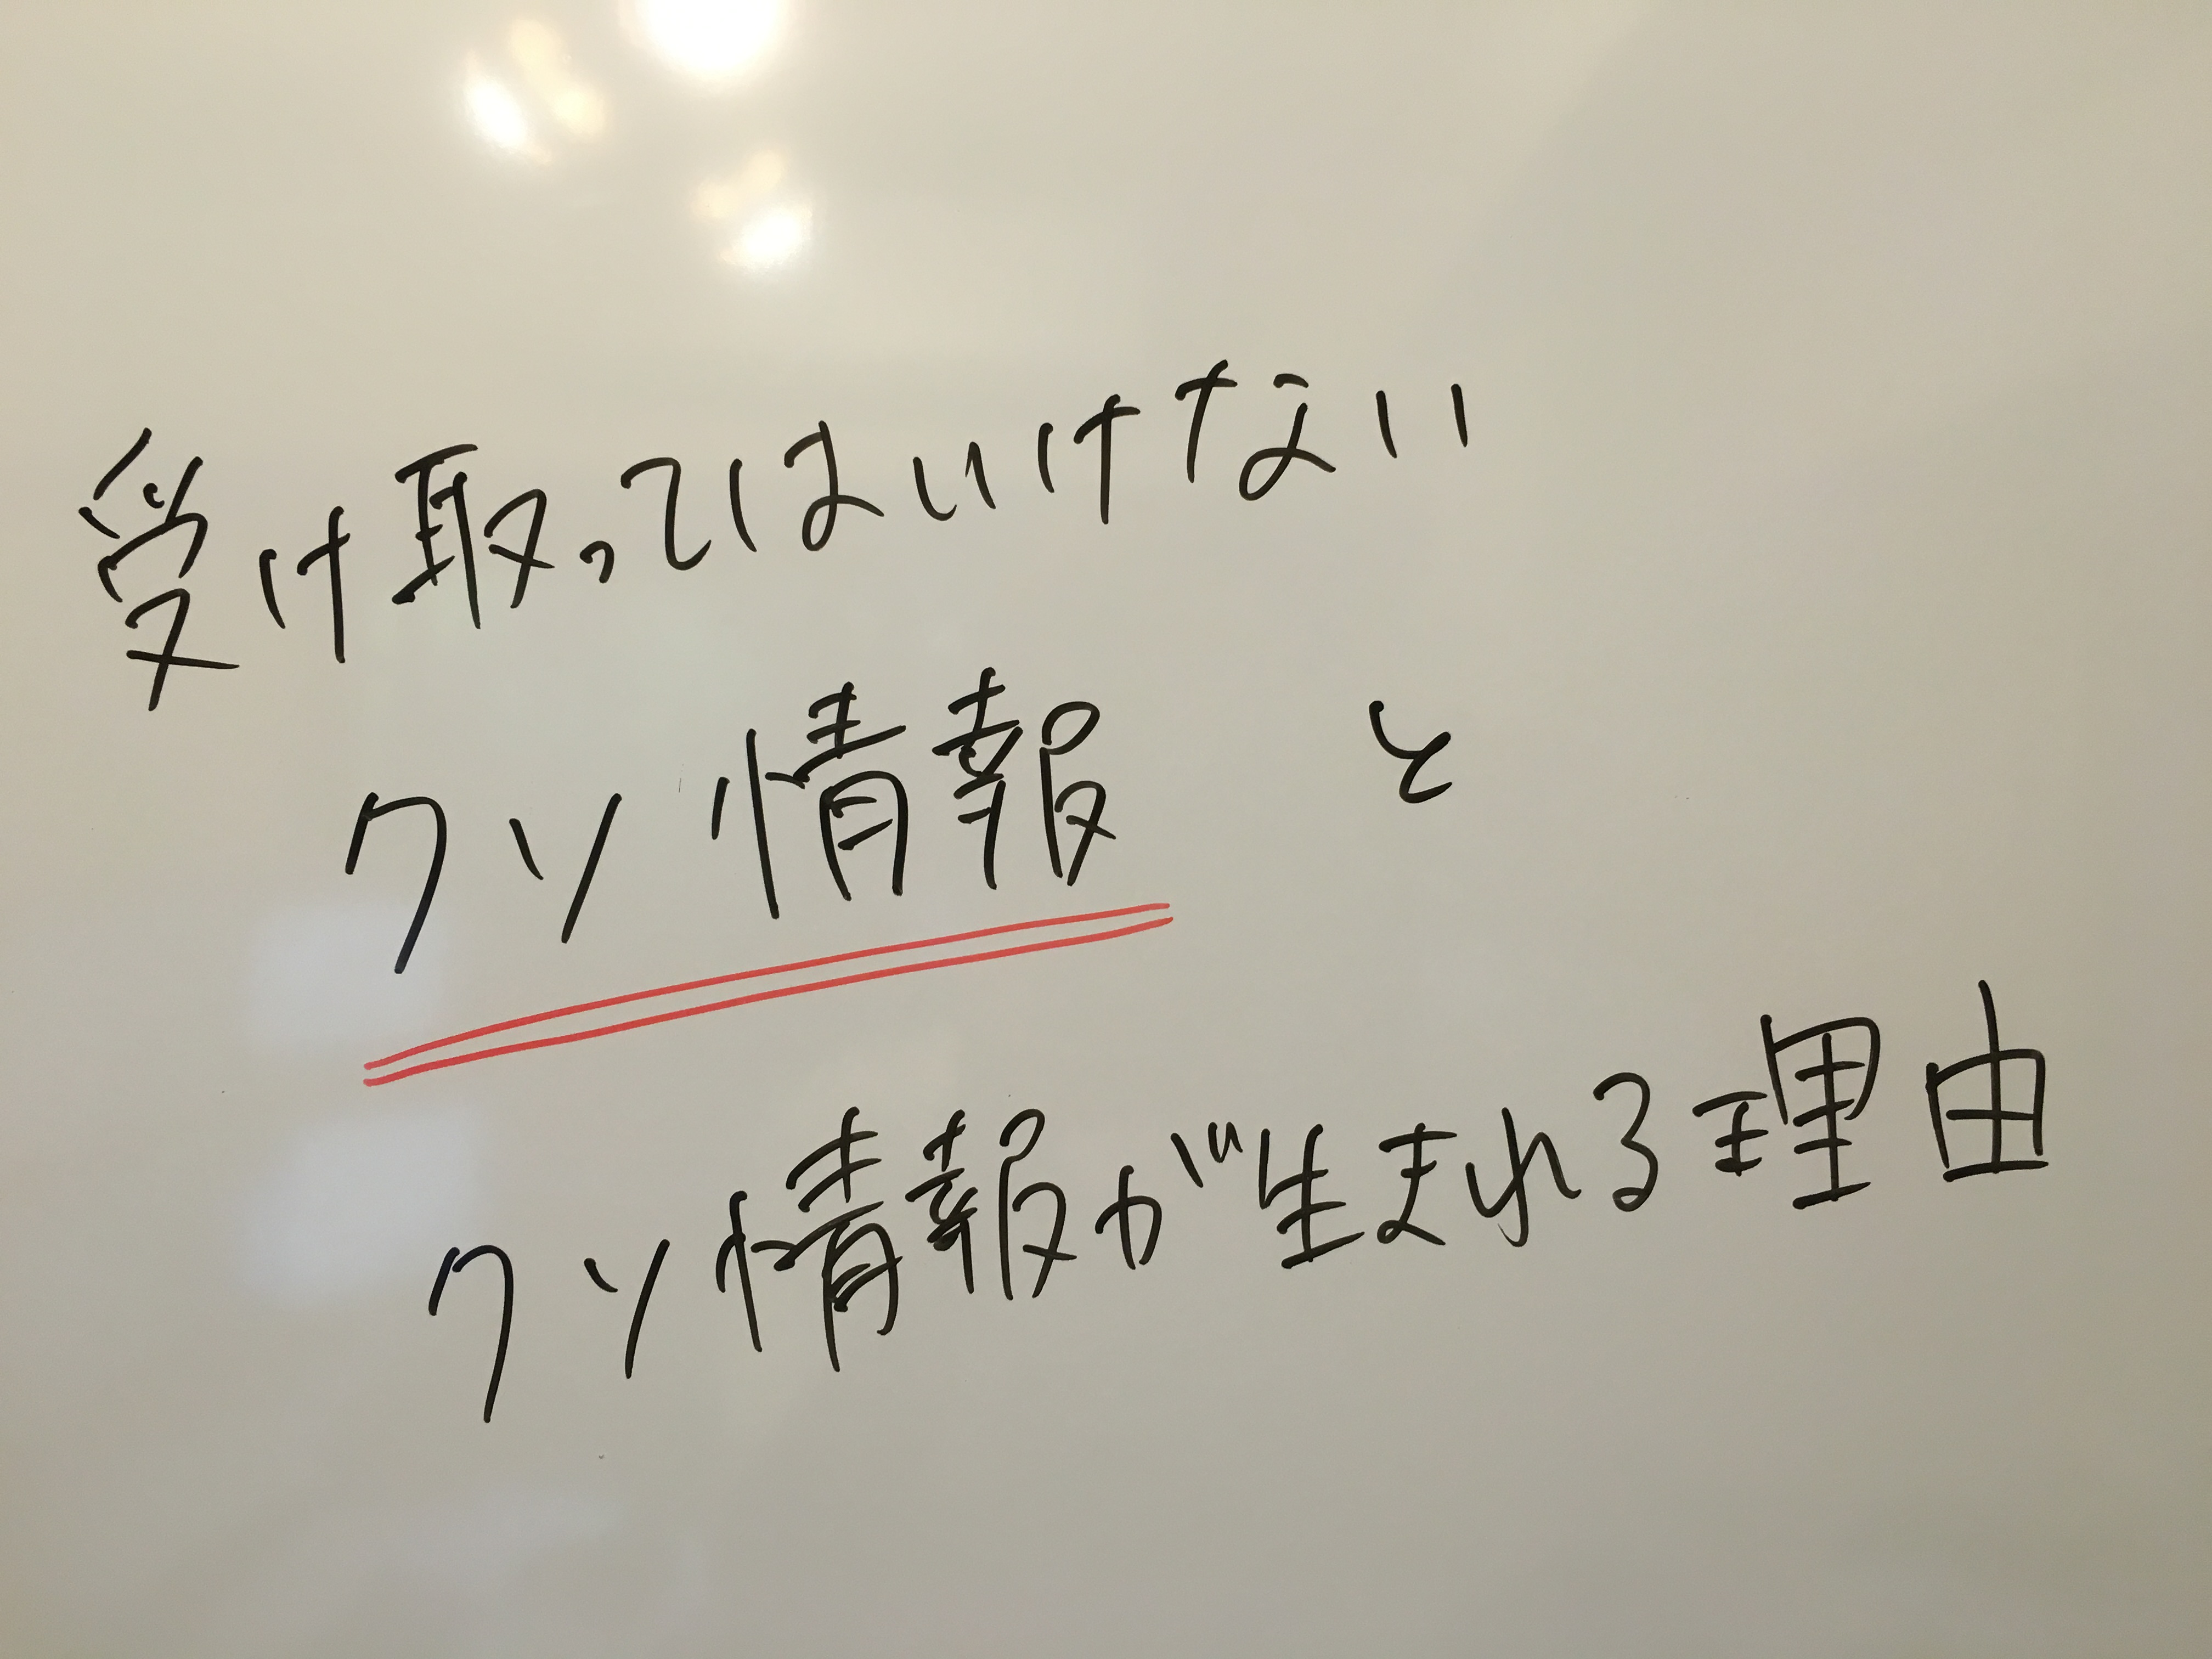 受け取ってはいけない
クソ情報 と
クソ情報が生まれる理由